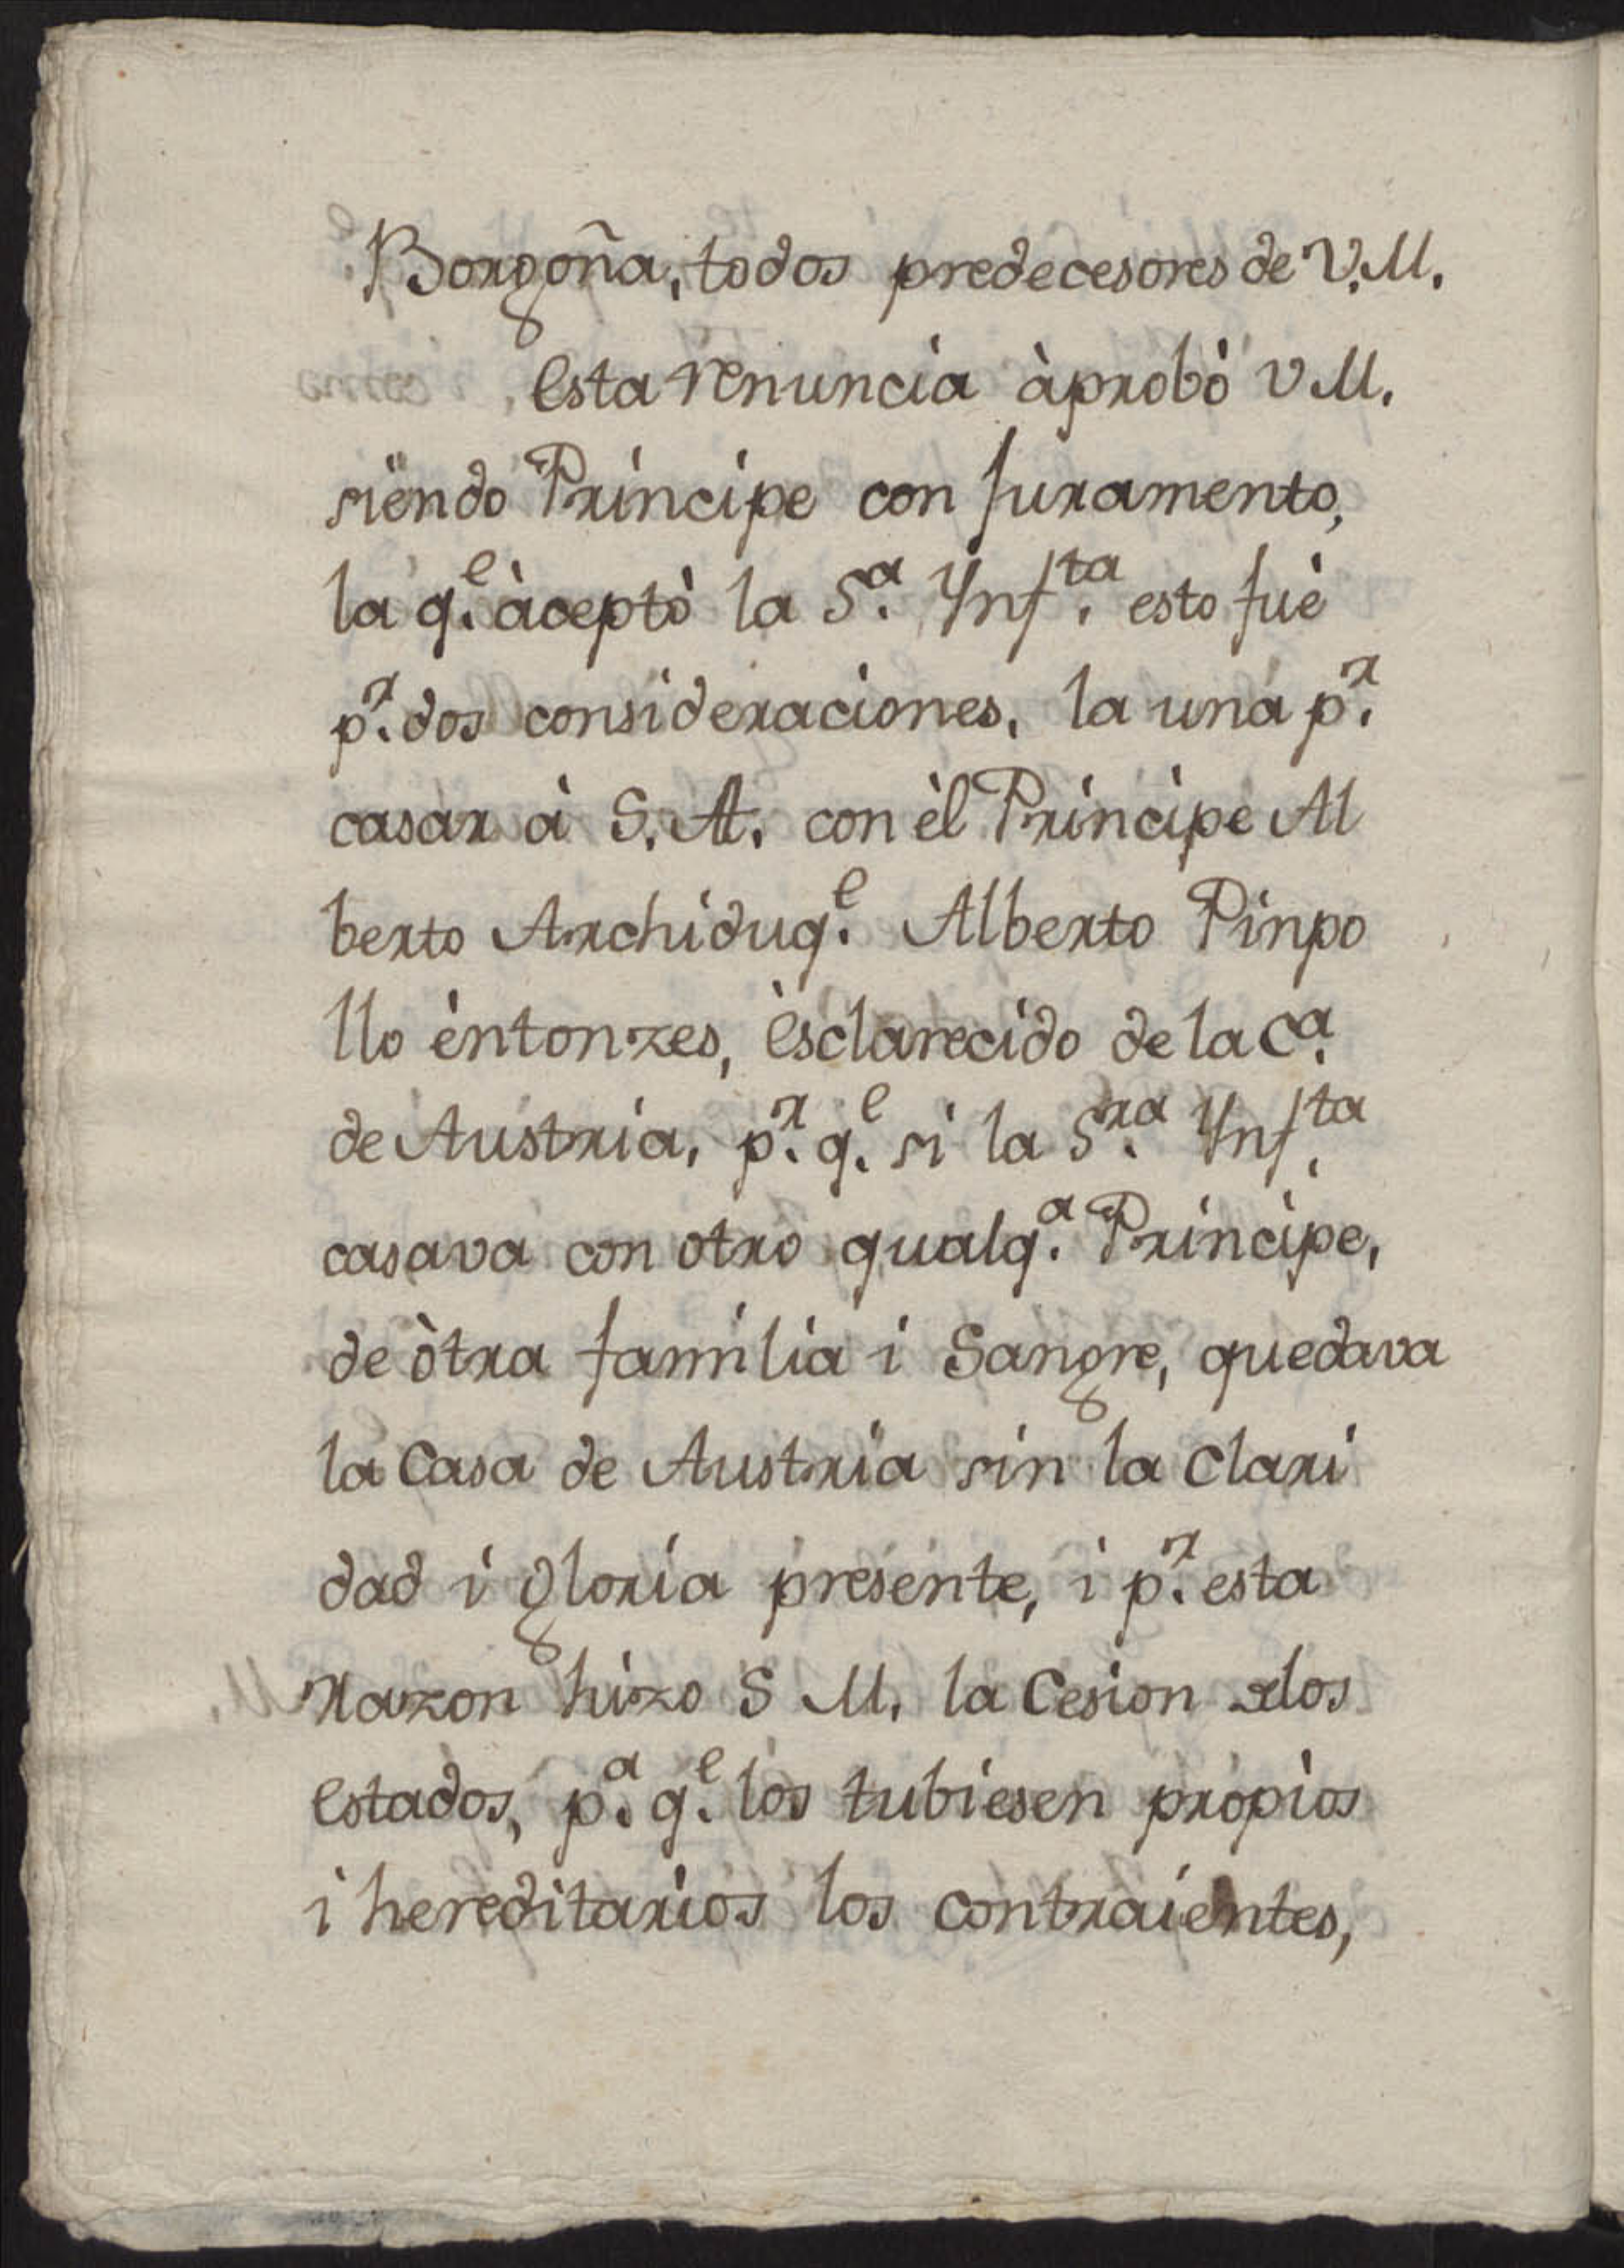 Borgoña, todos predecesores de V.M.
Esta renuncia àprobò V M.
siendo Principe con Juramento,
la q.e àceptò la S.a Ynf.ta esto fuè
p.r dos consideraciones, la una p.r
casar à S. A. con èl Principe Al
berto Archiduq.e Alberto Pinpo
llo èntonzes, Èsclarecido de la C.a
de Austria, p.r q.e si la S.ra Ynf.ta
casava con otro qualq.a Principe,
de òtra familia i Sangre, quedava
la Casa de Austria sin la Clari
dad i gloria presente, i p.r esta
razon hizo S M. la Cesion delos
Estados, p.a q.e los tubiesen propios
i hereditarios los Contraientes,